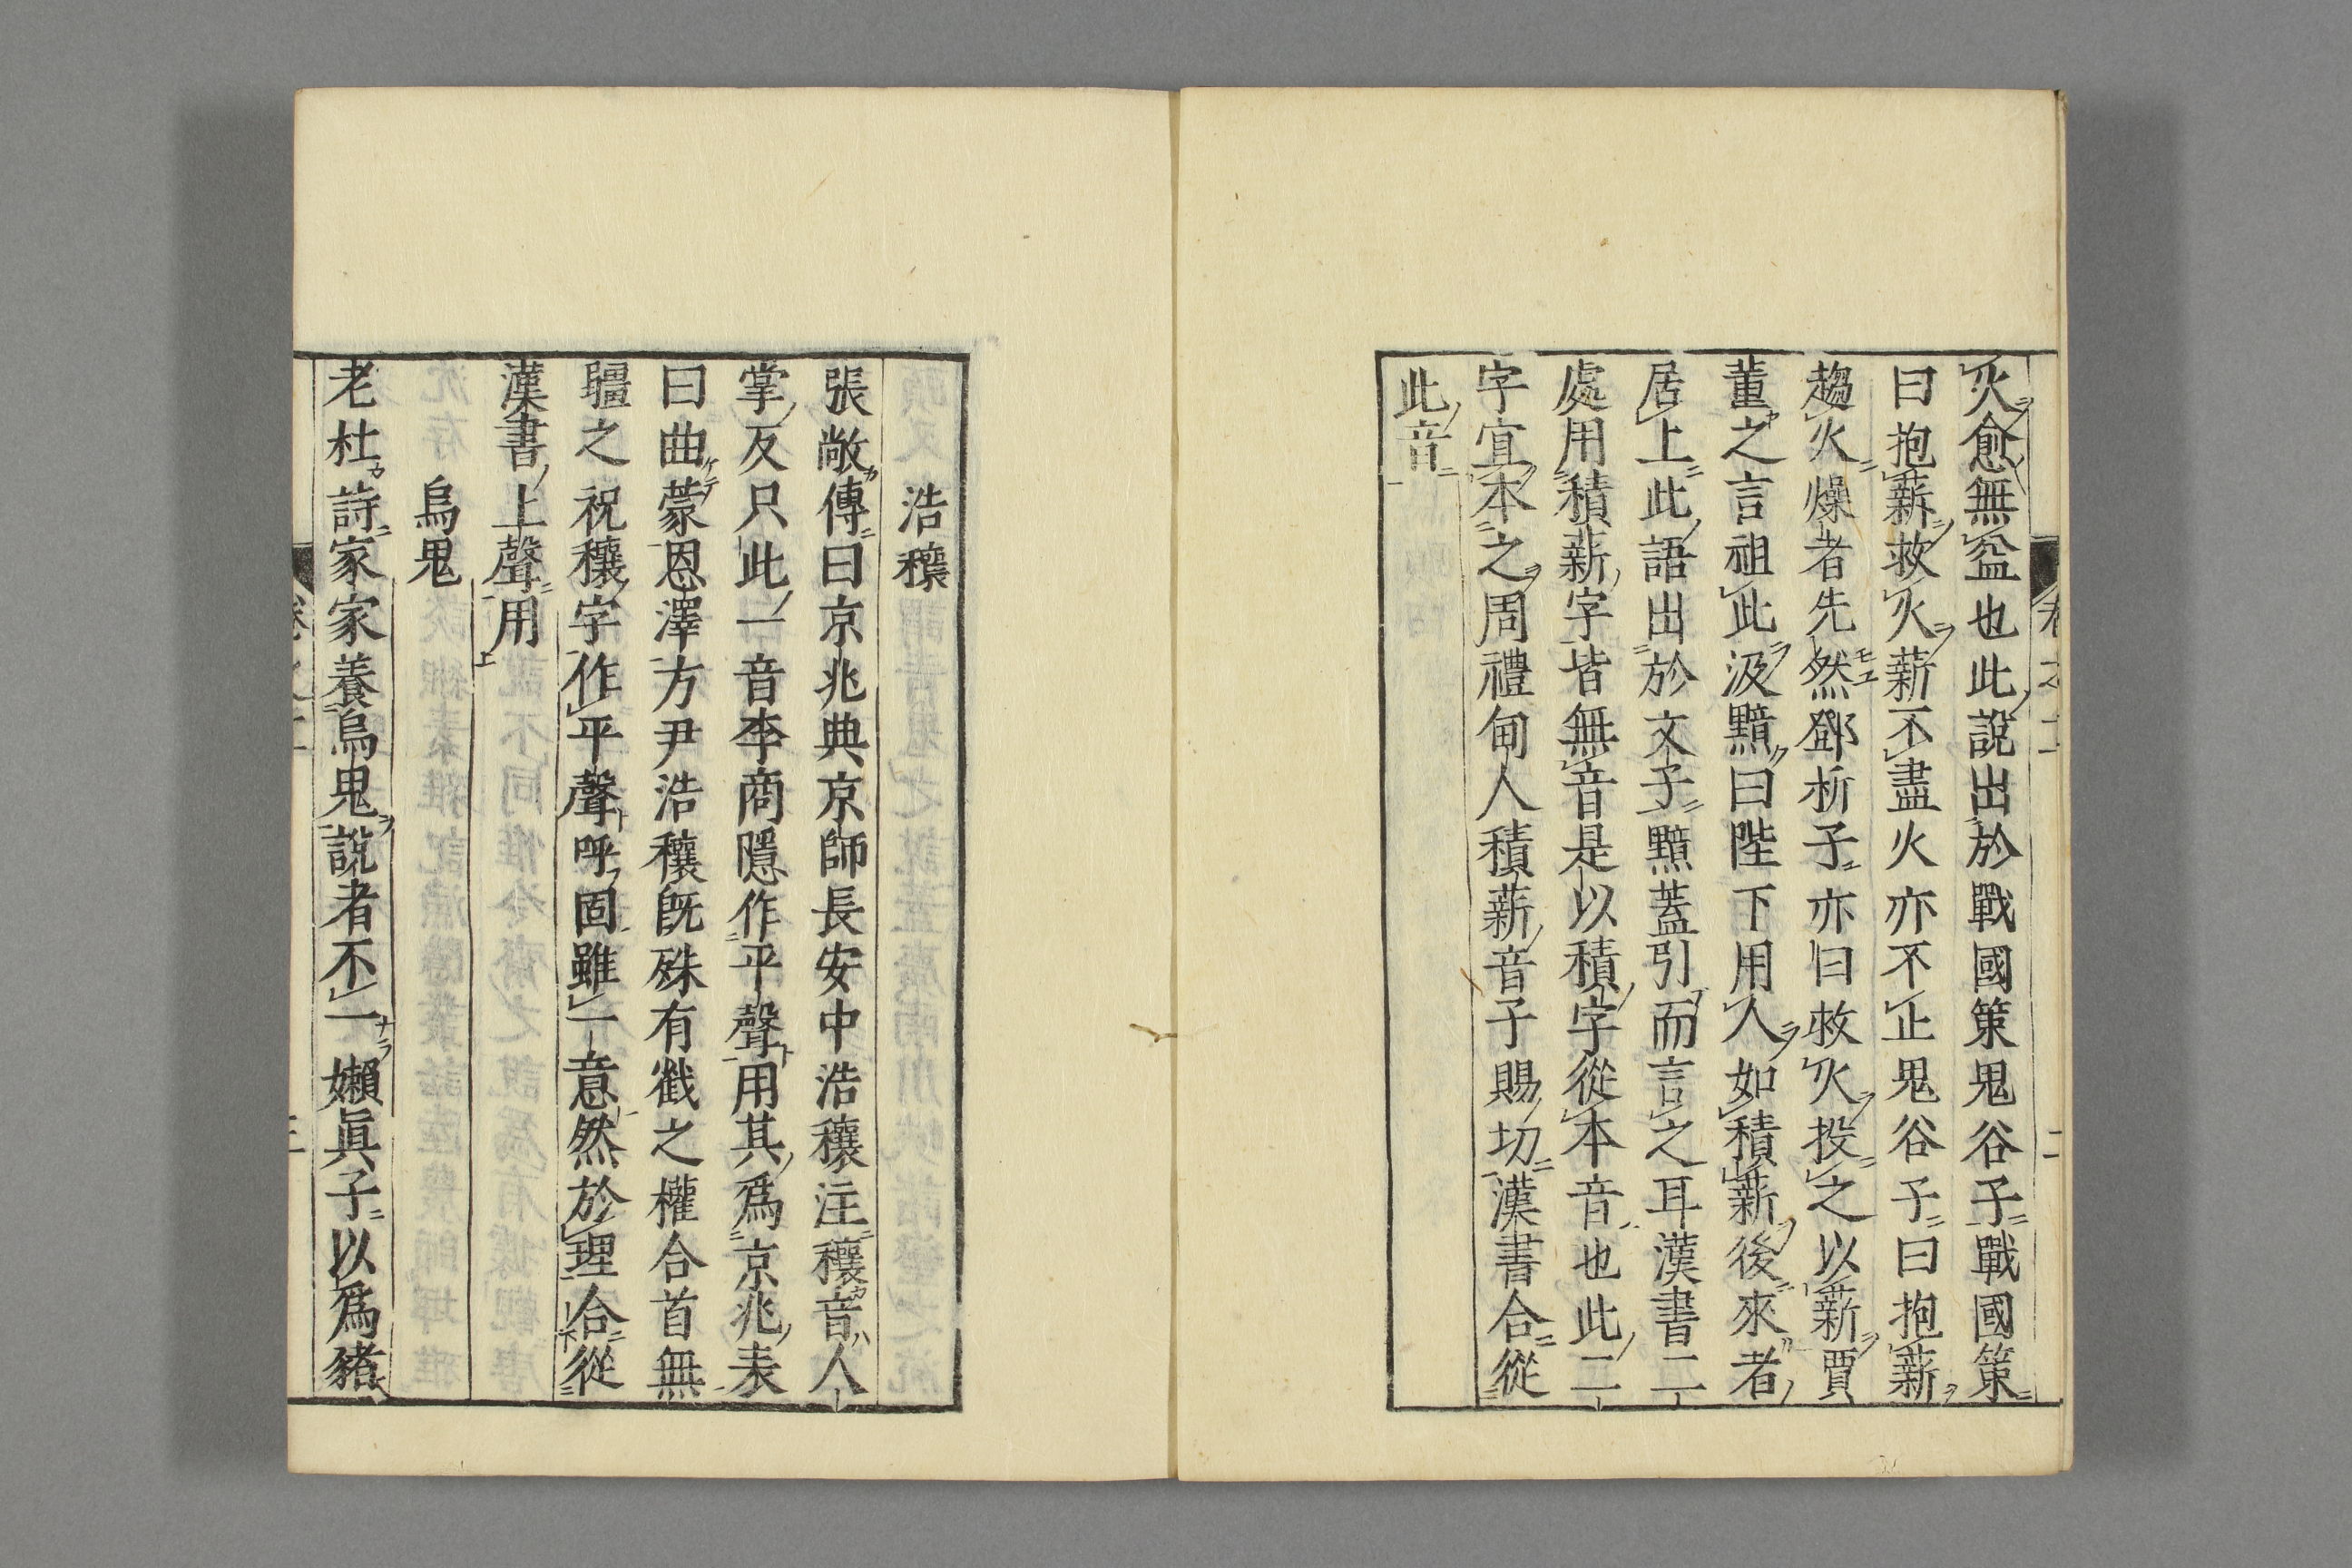 火愈無益也此說出於戰國策鬼谷子戰國策
曰抱薪救火薪不盡火亦不止鬼谷子曰抱薪
趨火燥者先然鄧析子亦曰救火投之以薪賈
董之言祖此汲黯曰陛下用人如積薪後來者
居上此語出於文子黯蓋引而言之耳漢書二
處用積薪字皆無音是以積字從本音也此二
字宜本之周禮甸人積薪音子賜切漢書合從
此音
浩穰
張敞傳曰京兆典京師長安中浩穰注穰音人
掌反只此一音李商隱作平聲用其爲京兆表
曰曲蒙恩澤方尹浩穰旣殊有截之權合首無
疆之祝穰字作平聲呼固雖一意然於理合從
漢書上聲用
烏鬼
老杜詩家家養烏鬼說者不一嬾眞子以爲豬